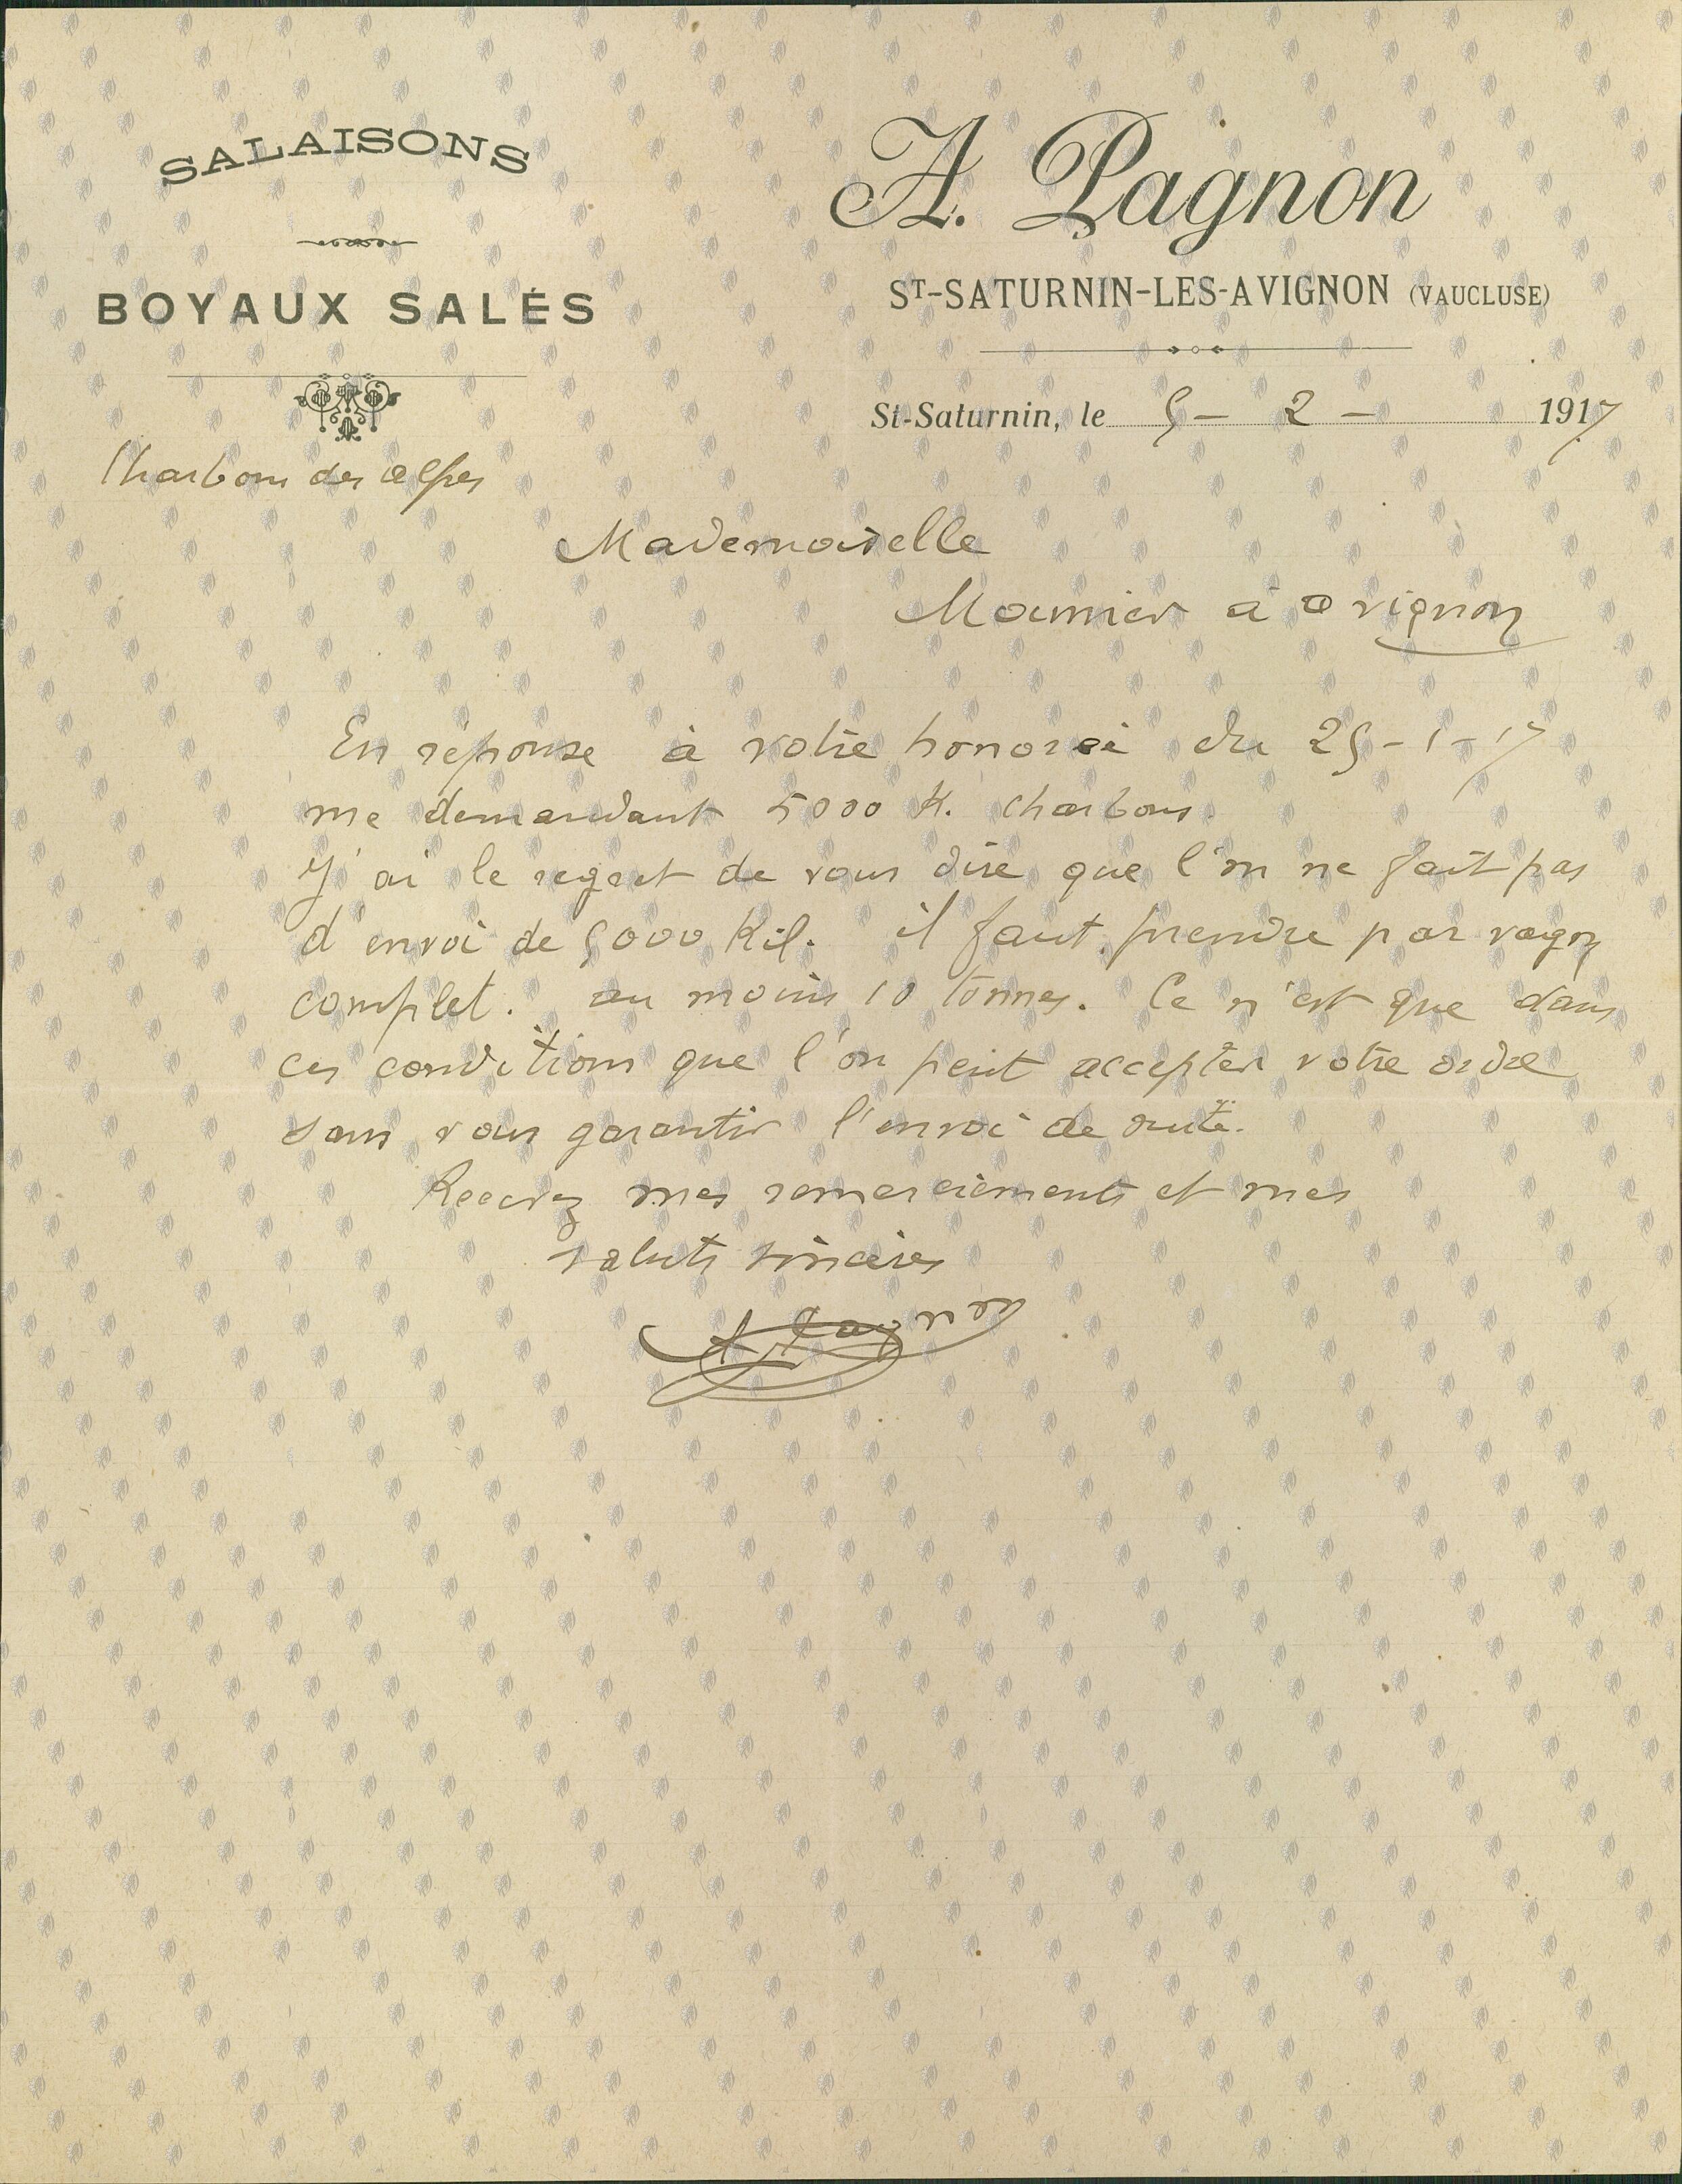 SALAISONS
BOYAUX SALÉS
A. Pagnon
ST-SATURNIN-LES-AVIGNON (VAUCLUSE)
St-Saturnin, le 5 - 2 - 1917
Charbons des alpes
Mademoiselle
Mounier à avignon
En réponse à votre honorée du 25-1-17
me demandant 5000 K. charbons.
J'ai le regret de vous dire que l'on ne fait pas
d'envoi de 5000 Kil. il faut prendre par vagon
complet. au moins 10 tonnes. Ce n'est que dans
ces conditions que l'on peut accepter votre ordre
sans vous garantir l'envoi de suite.
Recevez mes remerciements et mes
saluts sincères
A Pagnon